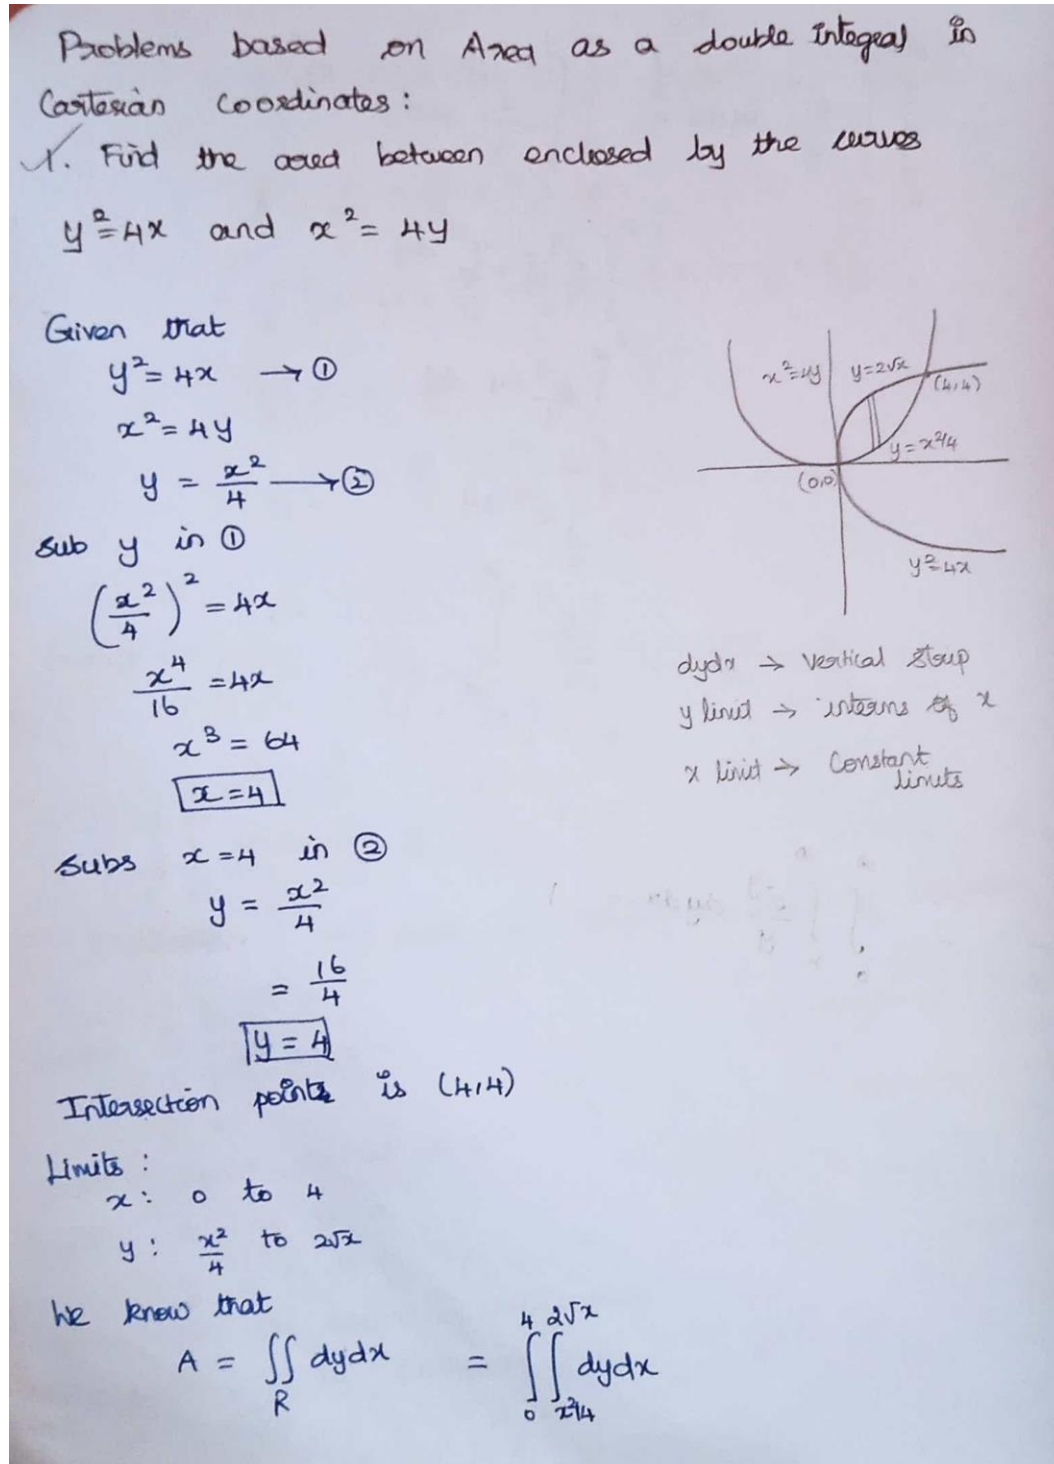 Problems based on Area as a double Integral in
Cartesian Coordinates:
1. Find the area between enclosed by the curves
y² = 4x and x² = 4y
Given that
y² = 4x → ①
x² = 4y
y = x²/4 → ②
Sub y in ①
(x²/4)² = 4x
x⁴/16 = 4x
x³ = 64
x = 4
Subs x = 4 in ②
y = x²/4
= 16/4
y = 4
Intersection points is (4,4)
Limits:
x: 0 to 4
y: x²/4 to 2√x
We know that
A = ∬_R dydx = ∫₀⁴ ∫_{x²/4}^{2√x} dydx
x² = 4y
y = 2√x
(4,4)
y = x²/4
(0,0)
y² = 4x
dydx → Vertical Strip
y limit → interms of x
x limit → Constant
limits